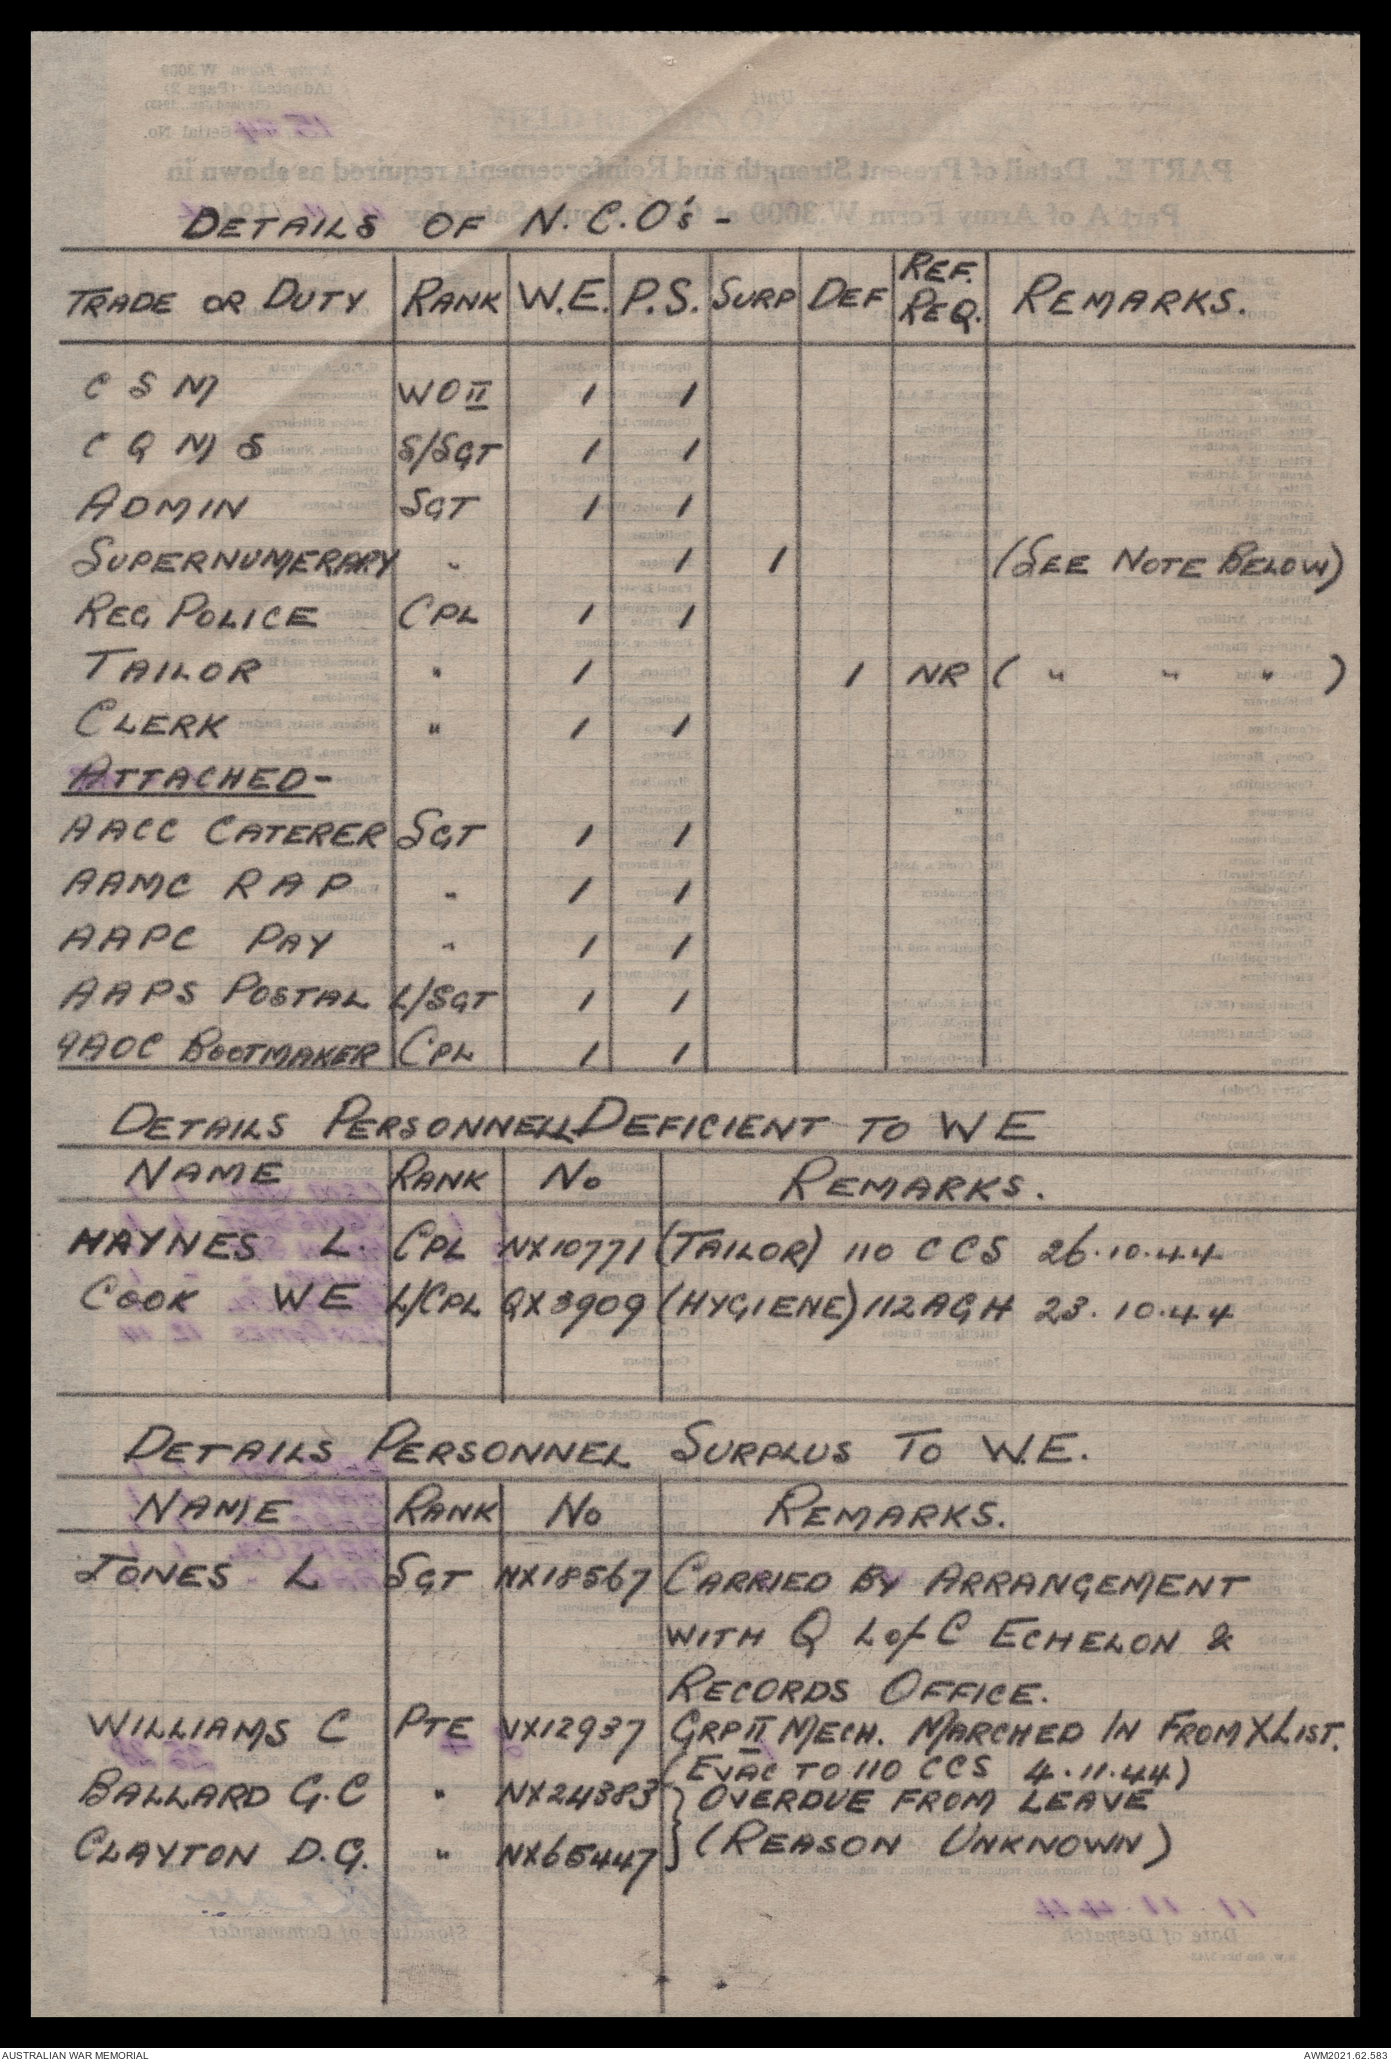 DETAILS OF N.C.O's -
TRADE OR DUTY RANK W.E. P.S. SURP DEF REF. REQ. REMARKS.
C S M WO II 1 1
C Q M S S/SGT 1 1
ADMIN SGT 1 1
SUPERNUMERARY " 1 1 (SEE NOTE BELOW)
REG POLICE CPL 1 1
TAILOR " 1 1 NR ( " " " )
CLERK " 1 1
ATTACHED -
AACC CATERER SGT 1 1
AAMC RAP " 1 1
AAPC PAY " 1 1
AAPS POSTAL L/SGT 1 1
AAOC BOOTMAKER CPL 1 1
DETAILS PERSONNEL DEFICIENT TO WE
NAME RANK No REMARKS.
HAYNES L. CPL NX10771 (TAILOR) 110 CCS 26.10.44
COOK WE L/CPL QX3909 (HYGIENE) 112AGH 23.10.44
DETAILS PERSONNEL SURPLUS TO W.E.
NAME RANK No REMARKS.
JONES L SGT NX18567 CARRIED BY ARRANGEMENT
WITH Q L of C ECHELON &
RECORDS OFFICE.
WILLIAMS C PTE VX12937 GRP II MECH. MARCHED IN FROM X LIST.
(EVAC TO 110 CCS 4.11.44)
BALLARD G.C " NX24383 } OVERDUE FROM LEAVE
CLAYTON D.G. " NX65447 } (REASON UNKNOWN)
AUSTRALIAN WAR MEMORIAL AWM2021.62.583